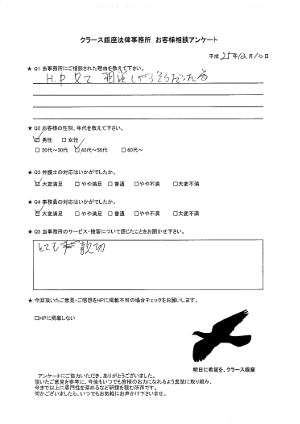 クラース銀座法律事務所 お客様相談アンケート
平成 25年10月10日
★ Q1 当事務所にご相談された理由を教えて下さい。
H.P 見て 相談しやすそうだった為
★ Q2 お客様の性別、年代を教えて下さい。
☑男性 □女性
□20代~30代 ☑40代~50代 □60代~
★ Q3 弁護士の対応はいかがでしたか。
☑大変満足 □やや満足 □普通 □やや不満 □大変不満
★ Q4 事務員の対応はいかがでしたか。
☑大変満足 □やや満足 □普通 □やや不満 □大変不満
★ Q5 当事務所のサービス・接客について感じたことをお聞かせ下さい。
とても 親切
★ 今回頂いたご意見・ご感想をHPに掲載不可の場合チェックをお願いします。
□HPに掲載しない
明日に希望を、クラース銀座
アンケートにご協力いただき、ありがとうございました。
頂いたご意見を参考に、今後もいつでも皆様のお力になれるよう真摯に取り組み、
今まで以上に専門性を深めるなど研鑽を積む所存です。
何かございましたら、いつでもお気軽にお声かけ下さいませ。